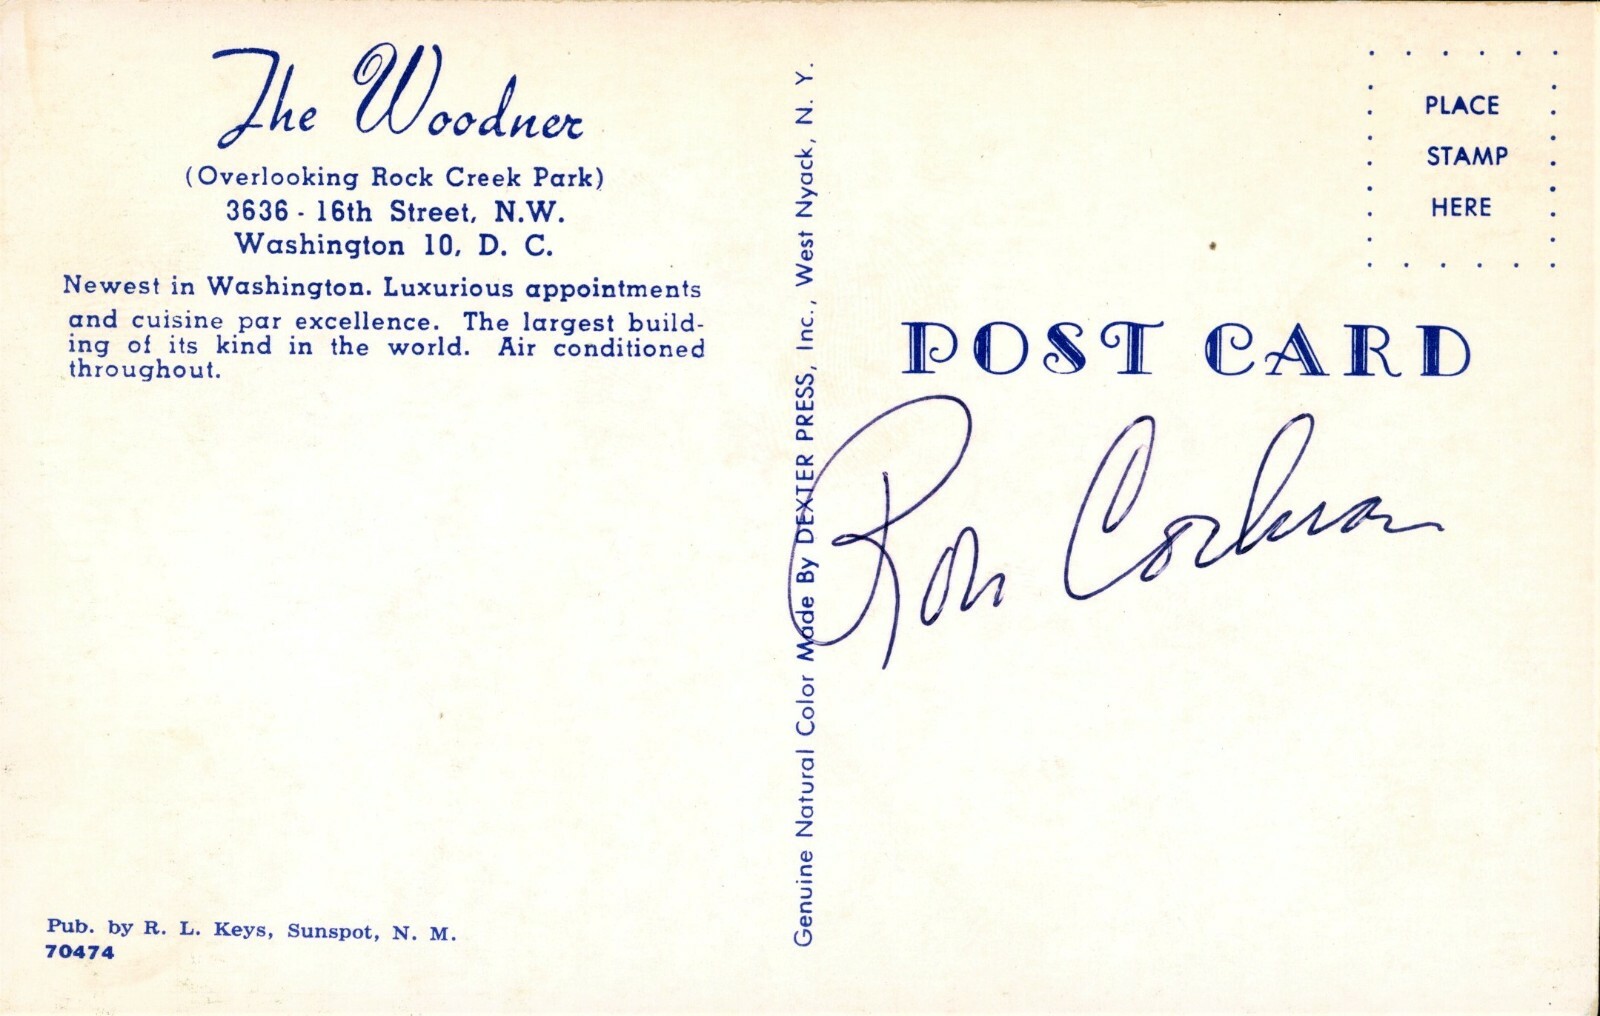 The Woodner
(Overlooking Rock Creek Park)
3636 - 16th Street, N.W.
Washington 10, D. C.
Newest in Washington. Luxurious appointments
and cuisine par excellence. The largest build-
ing of its kind in the world. Air conditioned
throughout.
Pub. by R. L. Keys, Sunspot, N. M.
70474
Genuine Natural Color Made By DEXTER PRESS, Inc., West Nyack, N. Y.
PLACE
STAMP
HERE
POST CARD
Ron Cochran